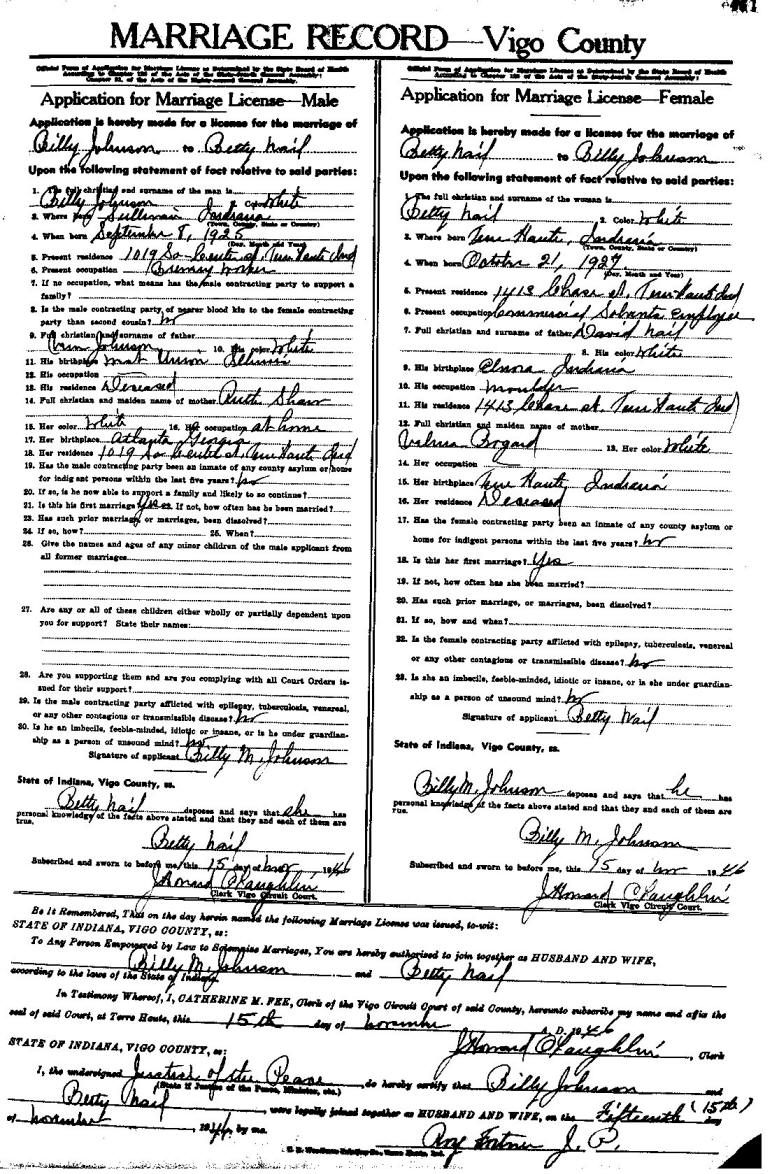 MARRIAGE RECORD—Vigo County
Official Form of Application for Marriage License as Determined by the State Board of Health
Application for Marriage License—Male
Application is hereby made for a license for the marriage of
Billy Johnson to Betty Nail
Upon the following statement of fact relative to said parties:
1. The full christian and surname of the man is
Billy Johnson White
3. Where born Sullivan Indiana
(Town, County, State or Country)
4. When born September 8, 1925
(Day, Month and Year)
5. Present residence 1019 So Center st. Terre Haute Ind
6. Present occupation Creamery Worker
7. If no occupation, what means has the male contracting party to support a
family?
8. Is the male contracting party of nearer blood kin to the female contracting
party than second cousin? No
9. Full christian and surname of father
Johnson 10. His color White
11. His birthplace Union Illinois
12. His occupation
13. His residence Deceased
14. Full christian and maiden name of mother Ruth Shaw
15. Her color White 16. Her occupation at home
17. Her birthplace Atlanta Georgia
18. Her residence 1019 So Center st. Terre Haute Ind
19. Has the male contracting party been an inmate of any county asylum or home
for indigent persons within the last five years? No
20. If so, is he now able to support a family and likely to so continue?
21. Is this his first marriage? Yes 22. If not, how often has he been married?
23. Has such prior marriage, or marriages, been dissolved?
24. If so, how? 25. When?
26. Give the names and ages of any minor children of the male applicant from
all former marriages
27. Are any or all of these children either wholly or partially dependent upon
you for support? State their names:
28. Are you supporting them and are you complying with all Court Orders is-
sued for their support?
29. Is the male contracting party afflicted with epilepsy, tuberculosis, venereal,
or any other contagious or transmissible disease? No
30. Is he an imbecile, feeble-minded, idiotic or insane, or is he under guardian-
ship as a person of unsound mind? No
Signature of applicant Billy M. Johnson
State of Indiana, Vigo County, ss.
Betty Nail deposes and says that she has
personal knowledge of the facts above stated and that they and each of them are
true.
Betty Nail
Subscribed and sworn to before me, this 15 day of Nov 1946
J. Howard O'Laughlin
Clerk Vigo Circuit Court.
Official Form of Application for Marriage License as Determined by the State Board of Health
Application for Marriage License—Female
Application is hereby made for a license for the marriage of
Betty Nail to Billy Johnson
Upon the following statement of fact relative to said parties:
1. The full christian and surname of the woman is
Betty Nail 2. Color White
3. Where born Terre Haute, Indiana
(Town, County, State or Country)
4. When born October 21, 1927
(Day, Month and Year)
5. Present residence 1413 Chase st. Terre Haute Ind
6. Present occupation Commercial Solvents Employee
7. Full christian and surname of father David Nail
8. His color White
9. His birthplace Elnora Indiana
10. His occupation Moulder
11. His residence 1413 Chase st. Terre Haute Ind
12. Full christian and maiden name of mother
Velma Bogard 13. Her color White
14. Her occupation
15. Her birthplace Terre Haute, Indiana
16. Her residence Deceased
17. Has the female contracting party been an inmate of any county asylum or
home for indigent persons within the last five years? No
18. Is this her first marriage? Yes
19. If not, how often has she been married?
20. Has such prior marriage, or marriages, been dissolved?
21. If so, how and when?
22. Is the female contracting party afflicted with epilepsy, tuberculosis, venereal
or any other contagious or transmissible disease? No
23. Is she an imbecile, feeble-minded, idiotic or insane, or is she under guardian-
ship as a person of unsound mind? No
Signature of applicant Betty Nail
State of Indiana, Vigo County, ss.
Billy M. Johnson deposes and says that he has
personal knowledge of the facts above stated and that they and each of them are
rue.
Billy M. Johnson
Subscribed and sworn to before me, this 15 day of Nov 1946
J. Howard O'Laughlin
Clerk Vigo Circuit Court.
Be It Remembered, That on the day herein named the following Marriage License was issued, to-wit:
STATE OF INDIANA, VIGO COUNTY, ss:
To Any Person Empowered by Law to Solemnize Marriages, You are hereby authorized to join together as HUSBAND AND WIFE,
Billy M. Johnson and Betty Nail
according to the laws of the State of Indiana.
In Testimony Whereof, I, CATHERINE M. FEE, Clerk of the Vigo Circuit Court of said County, hereunto subscribe my name and affix the
seal of said Court, at Terre Haute, this 15th day of November A. D. 1946
J. Howard O'Laughlin, Clerk
STATE OF INDIANA, VIGO COUNTY, ss:
I, the undersigned Justice of the Peace do hereby certify that Billy Johnson and
(State if Justice of the Peace, Minister, etc.)
Betty Nail were legally joined together as HUSBAND AND WIFE, on the Fifteenth (15th) day
of November 1946, by me.
Fortner J. P.